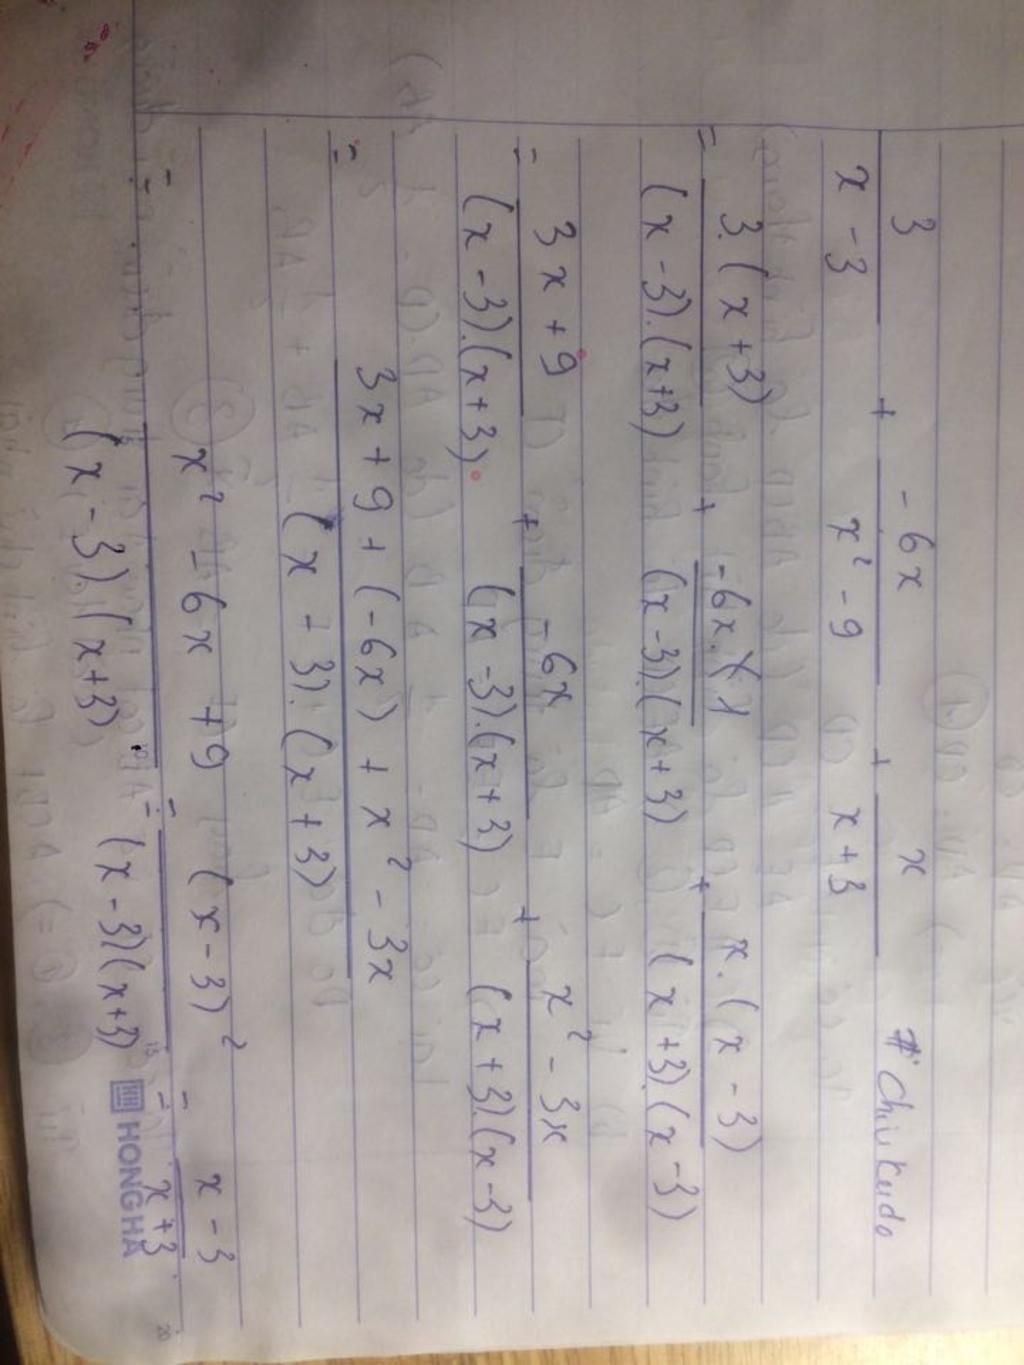 3/(x - 3) + (-6x)/(x² - 9) + x/(x+3) # Chiukudo
= 3.(x+3)/((x - 3).(x+3)) + (-6x.1)/((x-3).(x+3)) + x.(x - 3)/((x+3)(x-3))
= (3x + 9)/((x - 3).(x+3)) + (-6x)/((x-3).(x+3)) + (x² - 3x)/((x+3).(x-3))
= (3x + 9 + (-6x) + x² - 3x)/((x - 3).(x+3))
= (x² - 6x + 9)/((x - 3)(x+3)) = (x - 3)²/((x - 3)(x+3)) = (x - 3)/(x + 3)
15
HONG HA
20